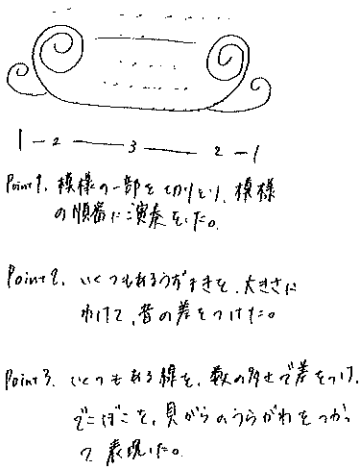 1 — 2 — 3 — 2 — 1
Point1. 模様の一部を切りとり、模様
の順番に演奏をした。
Point2. いくつもあるうずまきを、大きさに
わけて、音の差をつけた。
Point3. いくつもある線を、数の多さで差をつけ、
でこぼこを、貝がらのうらがわをつかっ
て表現した。